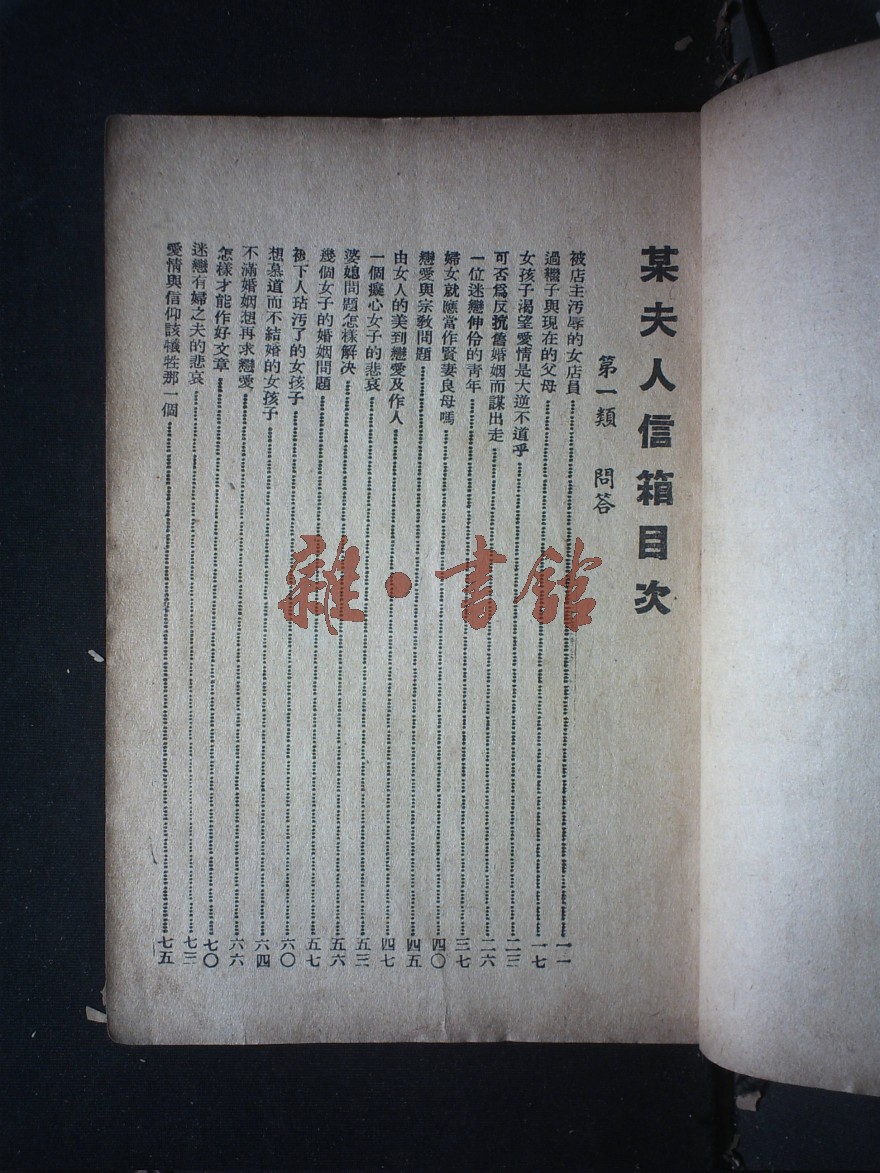 某夫人信箱目次
第一類 問答
被店主汚辱的女店員 一一
過繼子與現在的父母 一七
女孩子渴望愛情是大逆不道乎 二三
可否爲反抗舊婚姻而謀出走 二六
一位迷戀伸伶的青年 三七
婦女就應當作賢妻良母嗎 四〇
戀愛與宗教問題 四五
由女人的美到戀愛及作人 四七
一個癡心女子的悲哀 五三
婆媳問題怎樣解决 五六
幾個女子的婚姻問題 五七
被下人玷汚了的女孩子 六〇
想慕道而不結婚的女孩子 六四
不滿婚姻想再求戀愛 六六
怎樣才能作好文章 七〇
迷戀有婦之夫的悲哀 七三
愛情與信仰該犧牲那一個 七五
雜·書館